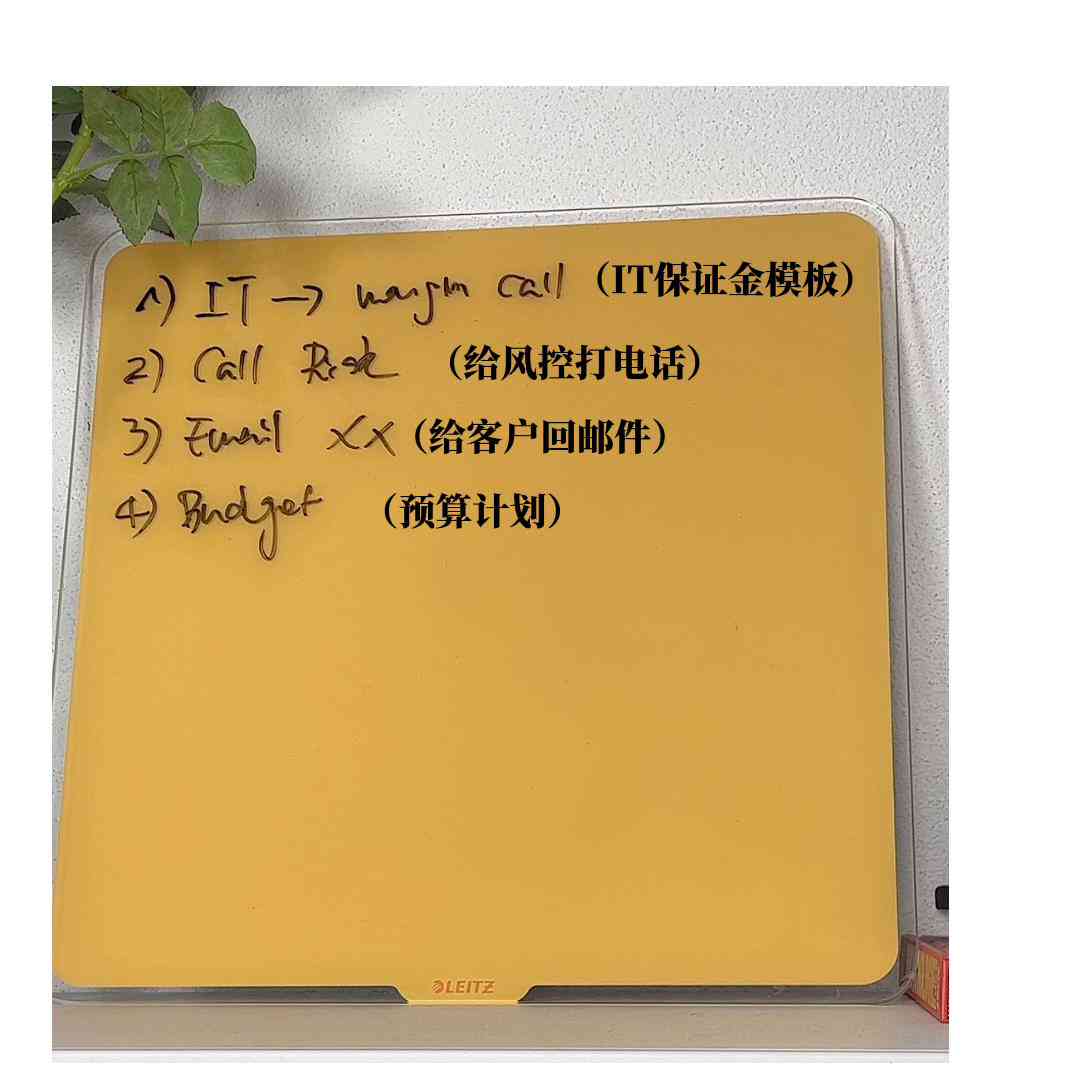 1) IT → margin call（IT保证金模板）
2) Call Risk （给风控打电话）
3) Email XX（给客户回邮件）
4) Budget （预算计划）
LEITZ